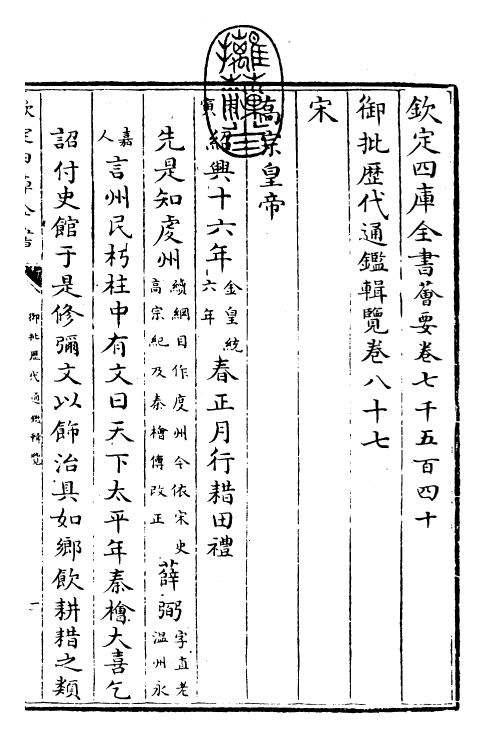 欽定四庫全書薈要卷七千五百四十
御批歷代通鑑輯覽卷八十七
宋
高宗皇帝
寅紹興十六年金皇統六年春正月行耤田禮
先是知虔州續綱目作度州今依宋史高宗紀及秦檜傳改正薛弼字直老溫州永
嘉人言州民朽柱中有文曰天下太平年秦檜大喜乞
詔付史館于是修彌文以飾治具如鄉飲耕耤之類
欽定四庫全書
御批歷代通鑑輯覽
一